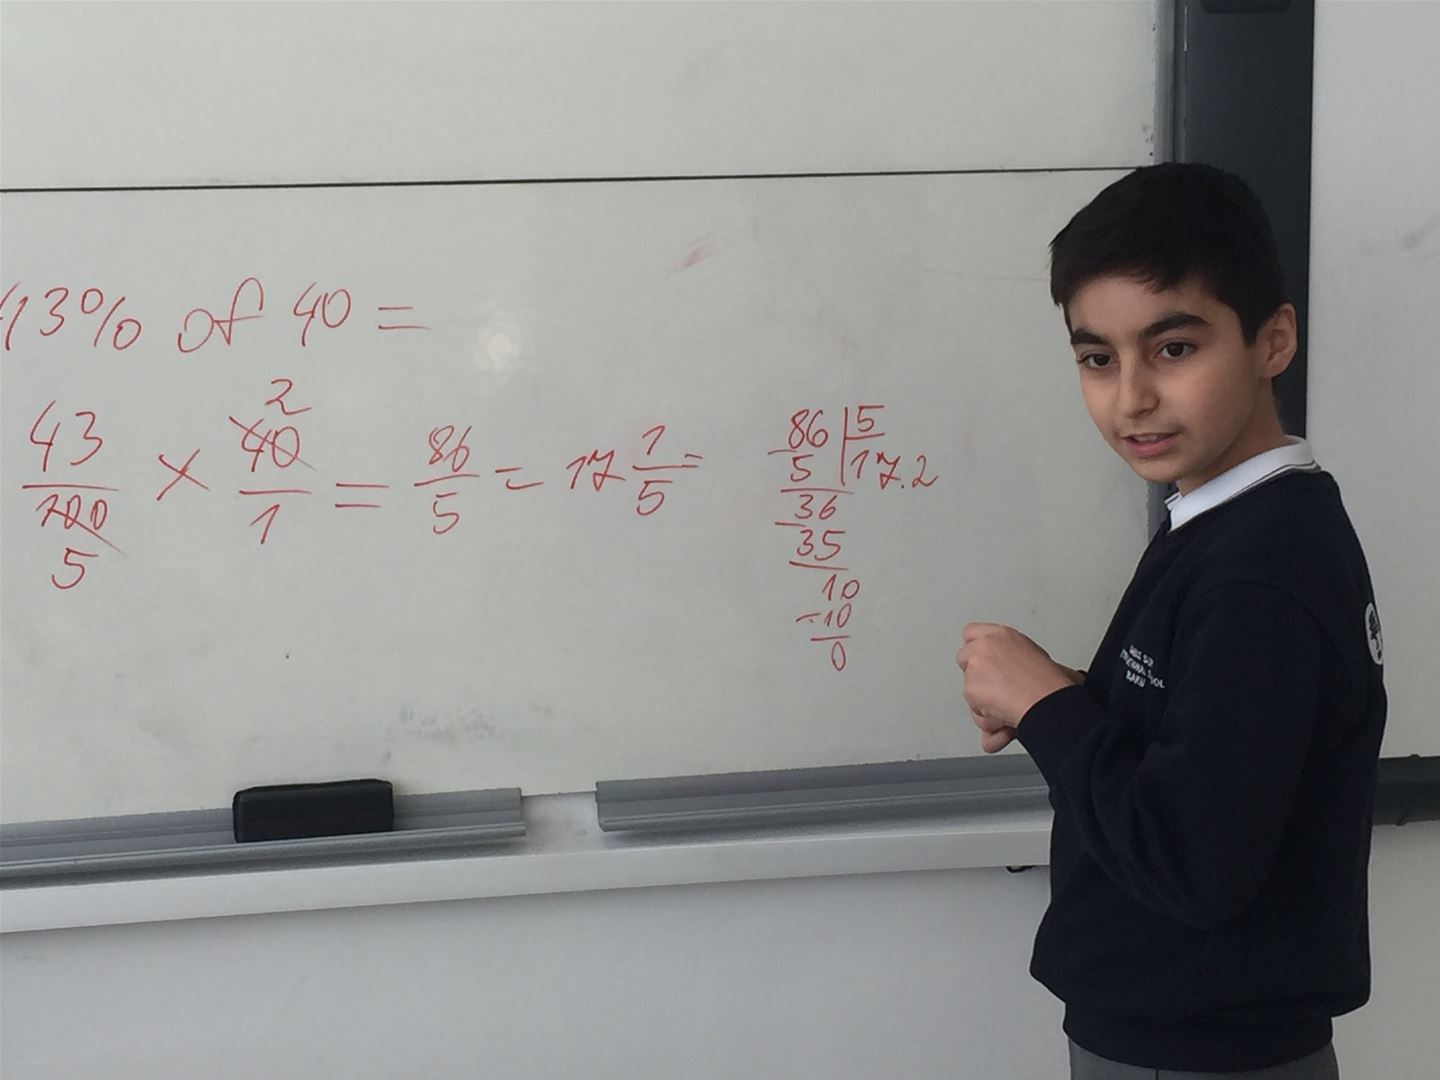 43% of 40 =
43/100 5 × 40/1 2 = 86/5 = 17 1/5 =
86 | 5
5 | 17.2
36
35
10
-10
0